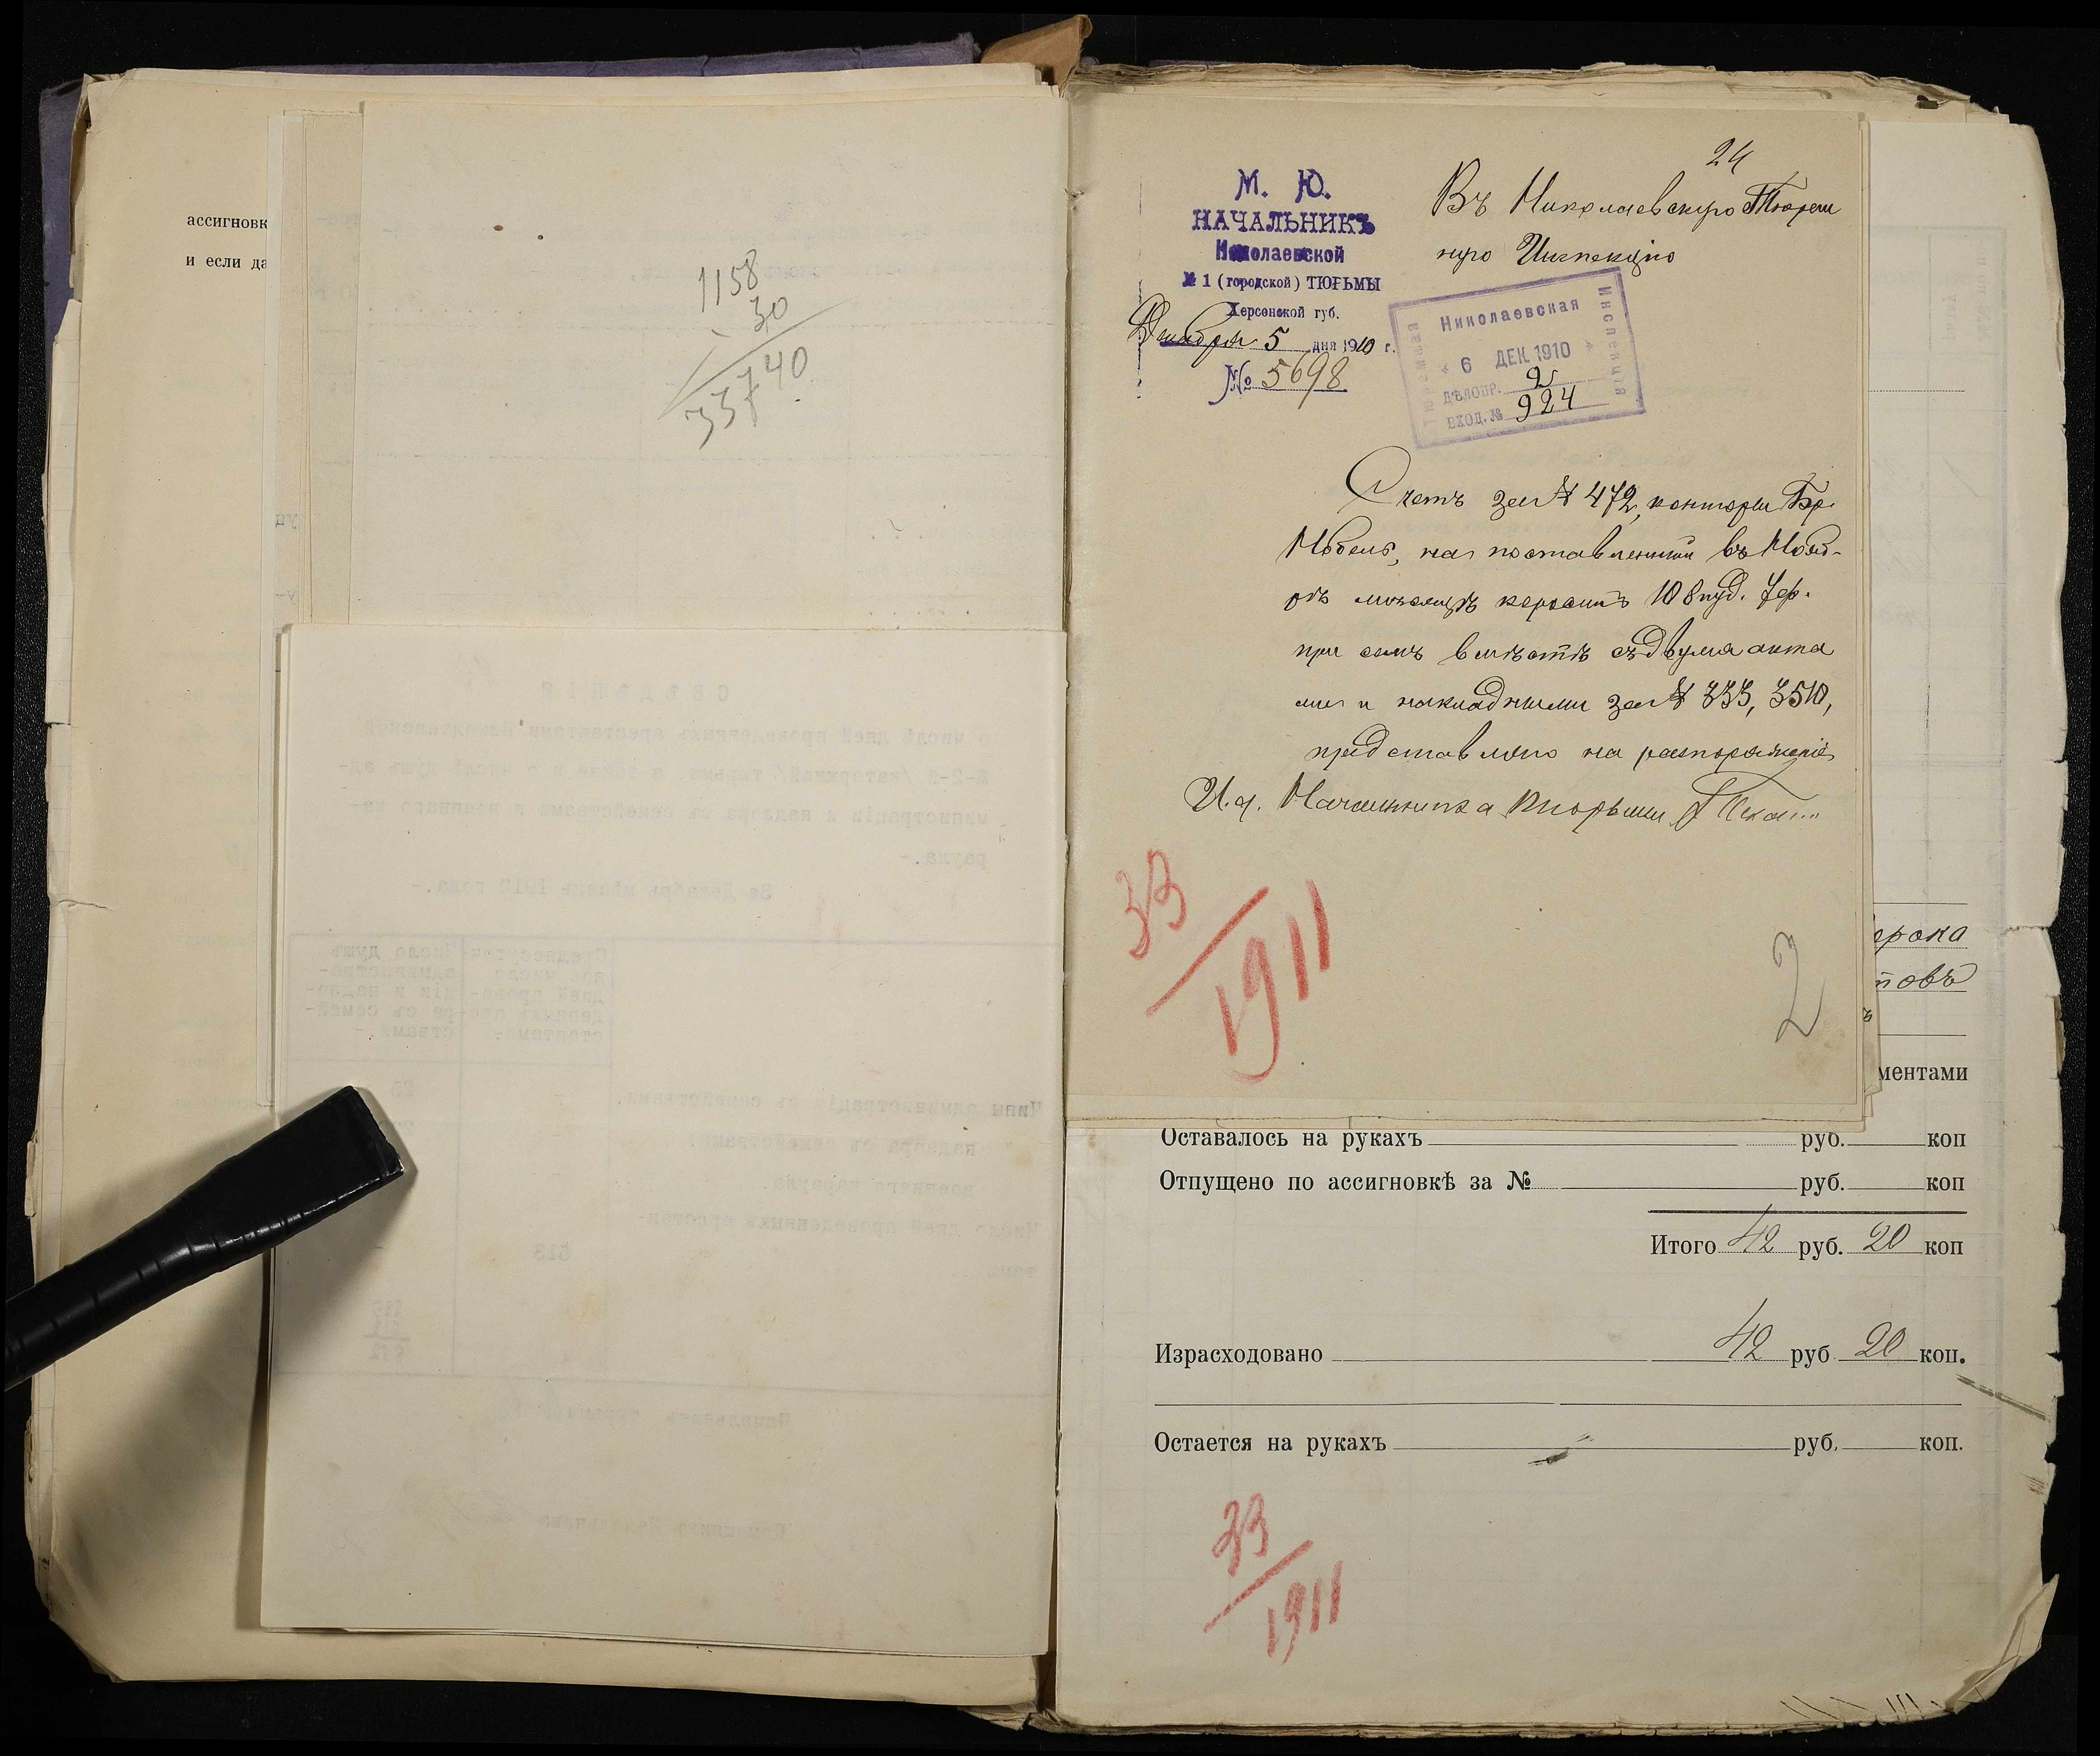 ассигновк
и если да
1158
30
33740
24
М. Ю.
НАЧАЛЬНИКЪ
Николаевской
№ 1 (городской) ТЮРЬМЫ
Херсонской губ.
Декабря 5 дня 1910 г.
№ 5698
Въ Николаевскую Тюрем
ную Инспекцію
Николаевская
Тюремная
Инспекція
« 6 ДЕК 1910 »
ДѢЛОПР. 2
ВХОД. № 924
Счетъ за № 472, конторы Бр.
Нобель, на поставленный въ Нояб-
рѣ мѣсяцѣ керосинъ 108 пуд. 7 ф.
при семъ вмѣстѣ съ двумя акта
ми и накладными за № 333, 350,
представляю на распоряженіе
И.д. Начальника тюрьмы
33
1911
2
ерока
товъ
ъ
ментами
Оставалось на рукахъ руб. коп
Отпущено по ассигновкѣ за № руб. коп
Итого 42 руб. 20 коп
Израсходовано 42 руб 20 коп.
Остается на рукахъ руб. коп.
33
1911